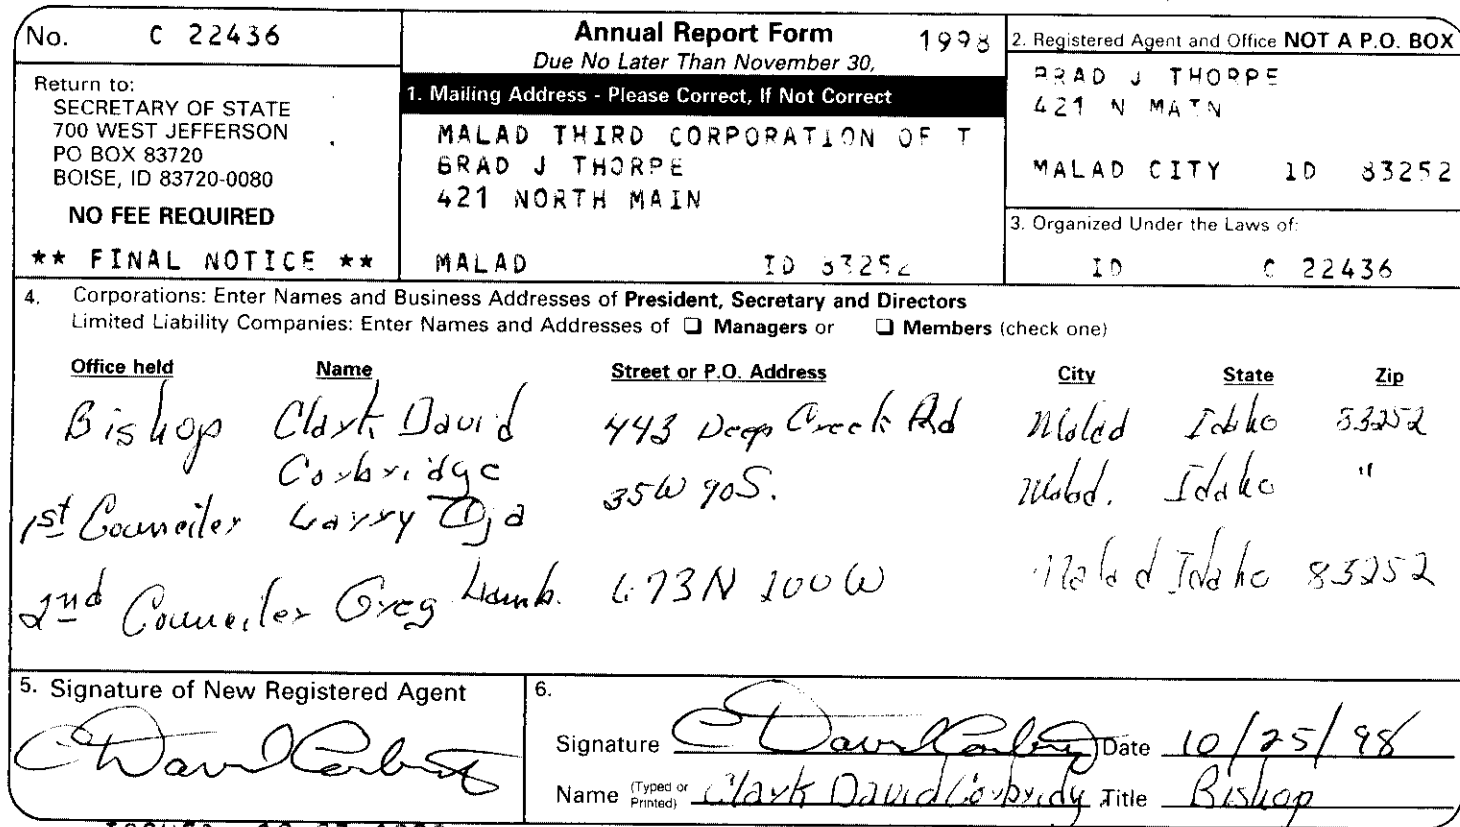 No. C 22436
Return to:
SECRETARY OF STATE
700 WEST JEFFERSON
PO BOX 83720
BOISE, ID 83720-0080
NO FEE REQUIRED
** FINAL NOTICE **
Annual Report Form 1998
Due No Later Than November 30,
1. Mailing Address - Please Correct, If Not Correct
MALAD THIRD CORPORATION OF T
BRAD J THORPE
421 NORTH MAIN
MALAD ID 83252
2. Registered Agent and Office NOT A P.O. BOX
BRAD J THORPE
421 N MAIN
MALAD CITY ID 83252
3. Organized Under the Laws of:
ID C 22436
4. Corporations: Enter Names and Business Addresses of President, Secretary and Directors
Limited Liability Companies: Enter Names and Addresses of ❏ Managers or ❏ Members (check one)
Office held Name Street or P.O. Address City State Zip
Bishop Clark David 443 Deep Creek Rd Malad Idaho 83252
Corbridge
1st Counciler Larry 35W 90S. Malad. Idaho "
2nd Counciler Greg Lamb. 673N 100W Malad Idaho 83252
5. Signature of New Registered Agent
6.
Signature Date 10/25/98
Name (Typed or Printed) Clark David Corbridg Title Bishop